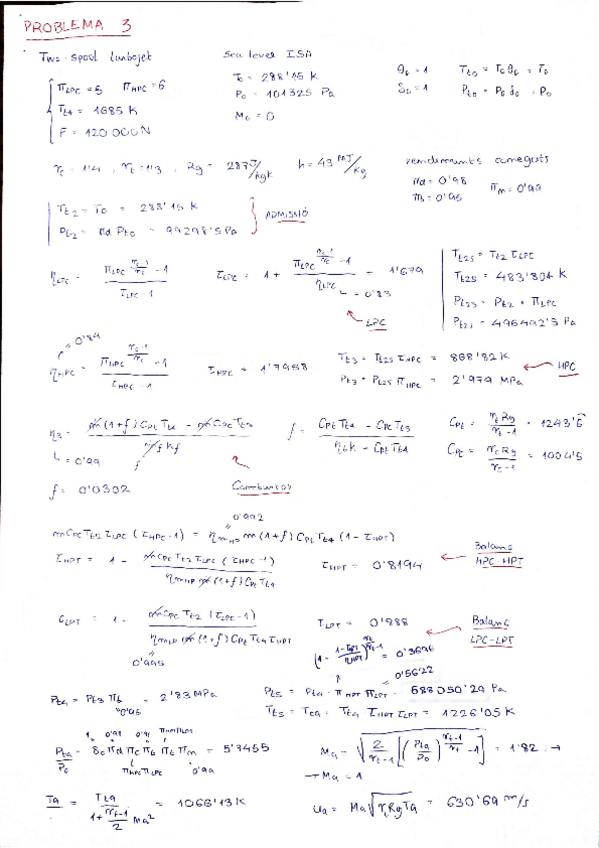 PROBLEMA 3
Two-spool turbojet
Sea level ISA
π_LPC = 5   π_HPC = 6
T_t4 = 1685 K
F = 120 000 N
T_0 = 288'15 K
P_0 = 101325 Pa
M_0 = 0
θ_0 = 1   T_t0 = T_0 θ_0 = T_0
δ_0 = 1   P_t0 = P_0 δ_0 = P_0
γ_c = 1'4 , γ_t = 1'3 , Rg = 287 J/kgK   h = 43 MJ/kg
π_d = 0'98
π_b = 0'95   π_m = 0'99
T_t2 = T_0 = 288'15 K
P_t2 = π_d P_t0 = 99298'5 Pa
ADMISSIÓ
η_LPC = (π_LPC^((γ_c-1)/γ_c) - 1) / (τ_LPC - 1)   τ_LPC = 1 + (π_LPC^((γ_c-1)/γ_c) - 1) / η_LPC = 1'679
= 0'83
LPC
T_t25 = T_t2 τ_LPC
T_t25 = 483'804 K
P_t25 = P_t2 · π_LPC
P_t25 = 496492'5 Pa
= 0'84
η_HPC = (π_HPC^((γ_c-1)/γ_c) - 1) / (τ_HPC - 1)   τ_HPC = 1'7958   T_t3 = T_t25 τ_HPC = 868'82 K
P_t3 = P_t25 π_HPC = 2'979 MPa
HPC
η_b = (ṁ(1+f) C_pt T_t4 - ṁ C_pc T_t3) / (ṁ f h)   f = (C_pt T_t4 - C_pc T_t3) / (η_b h - C_pt T_t4)   C_pt = γ_t Rg / (γ_t - 1) = 1243'6
= 0'99
C_pc = γ_c Rg / (γ_c - 1) = 1004'5
f = 0'0302
Combustor
0'992
ṁ C_pc T_t2 τ_LPC (τ_HPC - 1) = η_mHP ṁ (1+f) C_pt T_t4 (1 - τ_HPT)
τ_HPT = 1 - (ṁ C_pc T_t2 τ_LPC (τ_HPC - 1)) / (η_mHP ṁ (1+f) C_pt T_t4)   τ_HPT = 0'8194
Balanç
HPC-HPT
τ_LPT = 1 - (ṁ C_pc T_t2 (τ_LPC - 1)) / (η_mLP ṁ (1+f) C_pt T_t4 τ_HPT)   τ_LPT = 0'888
0'995
Balanç
LPC-LPT
(1 - (1 - τ_HPT)/η_HPT)^(γ_t/(γ_t-1)) = 0'3696
0'5622
P_t4 = P_t3 π_b = 2'83 MPa   P_t5 = P_t4 · π_HPT π_LPT = 588050'29 Pa
0'95
T_t5 = T_t9 = T_t4 τ_HPT τ_LPT = 1226'05 K
P_t9/P_0 = δ_0 π_d π_c π_b π_t π_m = 5'7455   M_9 = √(2/(γ_t-1) [(P_t9/P_0)^((γ_t-1)/γ_t) - 1]) = 1'82 →
π_HPC π_LPC   0'99
→ M_9 = 1
T_9 = T_t9 / (1 + (γ_t-1)/2 M_9²) = 1066'13 K   u_9 = M_9 √(γ_t Rg T_9) = 630'69 m/s